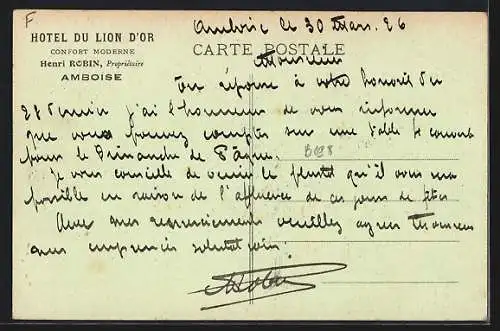 F
Amboise le 30 Mars. 26
HOTEL DU LION D'OR
CONFORT MODERNE
Henri ROBIN, Propriétaire
AMBOISE
CARTE POSTALE
Monsieur
En réponse à votre honorée du
28 j'ai l'honneur de vous informer
que vous pouvez compter sur une table 8 couverts
pour le Dimanche de Pâques.
B098
Je vous conseille de venir le plus tôt qu'il vous sera
possible en raison de l'affluence de ces jours de fêtes
Avec mes remerciements veuillez agréer Monsieur
mes empressées salutations.
Robin